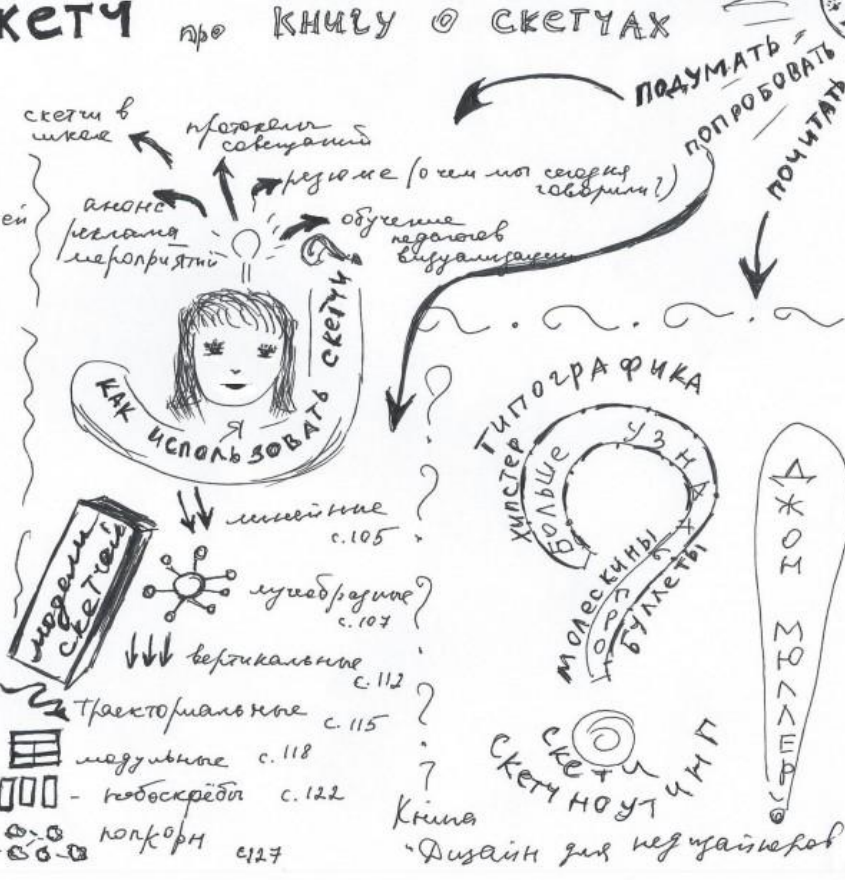 СКЕТЧ про КНИГУ О СКЕТЧАХ
ПОДУМАТЬ
ПОПРОБОВАТЬ
ПОЧИТАТЬ
скетчи в
школе
протоколы
совещаний
резюме (о чем мы сегодня
говорили?)
анонс
реклама
мероприятий
обучение
педагогов
визуализации
ей
КАК ИСПОЛЬЗОВАТЬ СКЕТЧИ
Я
модели
скетчей
линейные
с.105
лучеобразные
с.107
вертикальные
с.112
траекториальные с.115
модульные с.118
- небоскрёбы с.122
попкорн
с127
ТИПОГРАФИКА
ХИПСТЕР
Больше УЗНАТЬ ПРО
МОЛЕСКИНЫ
БУЛЛЕТЫ
СКЕТЧ
СКЕТЧНОУТИНГ
ДЖОН МЮЛЛЕР
Книга
"Дизайн для недизайнеров